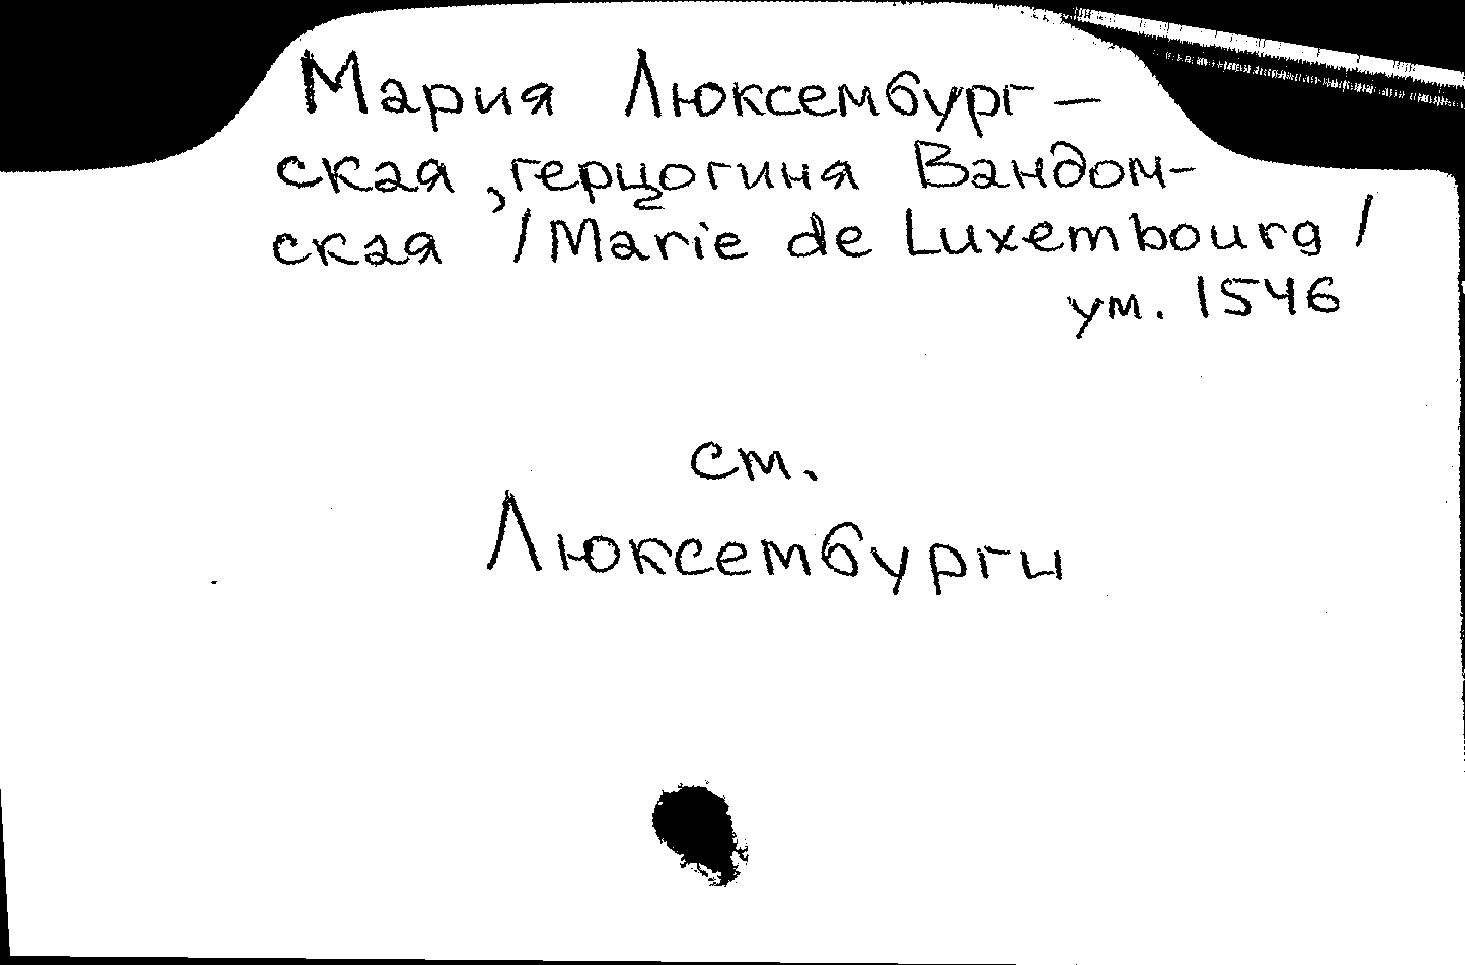 Мария Люксембург-
ская, герцогиня Вандом-
ская /Marie de Luxembourg/
ум. 1546
см.
Люксембурги